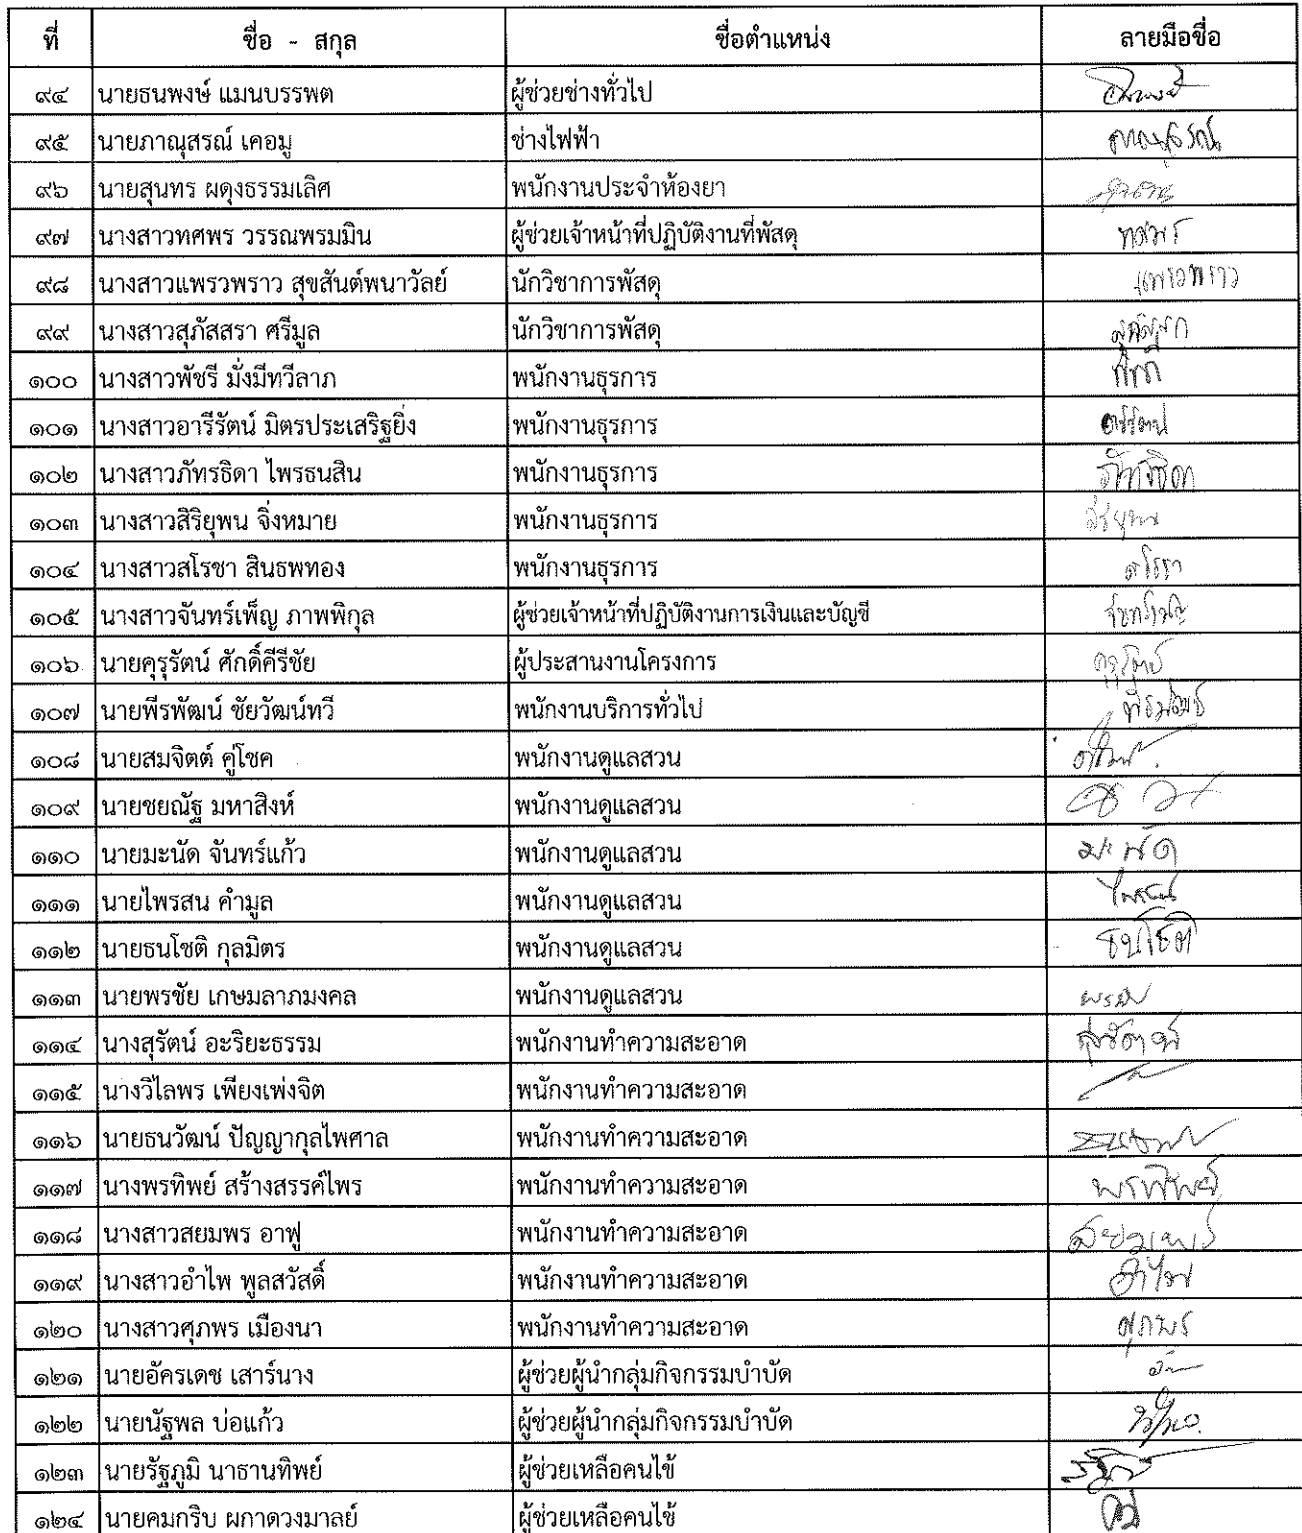 ที่ ชื่อ - สกุล ชื่อตำแหน่ง ลายมือชื่อ
๙๔ นายธนพงษ์ แมนบรรพต ผู้ช่วยช่างทั่วไป
๙๕ นายภาณุสรณ์ เคอมู ช่างไฟฟ้า ภาณุสรณ์
๙๖ นายสุนทร ผดุงธรรมเลิศ พนักงานประจำห้องยา
๙๗ นางสาวทศพร วรรณพรมมิน ผู้ช่วยเจ้าหน้าที่ปฏิบัติงานที่พัสดุ ทศพร
๙๘ นางสาวแพรวพราว สุขสันต์พนาวัลย์ นักวิชาการพัสดุ แพรวพราว
๙๙ นางสาวสุภัสสรา ศรีมูล นักวิชาการพัสดุ
๑๐๐ นางสาวพัชรี มั่งมีทวีลาภ พนักงานธุรการ
๑๐๑ นางสาวอารีรัตน์ มิตรประเสริฐยิ่ง พนักงานธุรการ อารีรัตน์
๑๐๒ นางสาวภัทรธิดา ไพรธนสิน พนักงานธุรการ ภัทรธิดา
๑๐๓ นางสาวสิริยุพน จิ่งหมาย พนักงานธุรการ สิริยุพน
๑๐๔ นางสาวสโรชา สินธพทอง พนักงานธุรการ สโรชา
๑๐๕ นางสาวจันทร์เพ็ญ ภาพพิกุล ผู้ช่วยเจ้าหน้าที่ปฏิบัติงานการเงินและบัญชี จันทร์เพ็ญ
๑๐๖ นายคุรุรัตน์ ศักดิ์คีรีชัย ผู้ประสานงานโครงการ คุรุรัตน์
๑๐๗ นายพีรพัฒน์ ชัยวัฒน์ทวี พนักงานบริการทั่วไป พีรพัฒน์
๑๐๘ นายสมจิตต์ คู่โชค พนักงานดูแลสวน
๑๐๙ นายชยณัฐ มหาสิงห์ พนักงานดูแลสวน
๑๑๐ นายมะนัด จันทร์แก้ว พนักงานดูแลสวน มะนัด
๑๑๑ นายไพรสน คำมูล พนักงานดูแลสวน ไพรสน
๑๑๒ นายธนโชติ กุลมิตร พนักงานดูแลสวน ธนโชติ
๑๑๓ นายพรชัย เกษมลาภมงคล พนักงานดูแลสวน พรชัย
๑๑๔ นางสุรัตน์ อะริยะธรรม พนักงานทำความสะอาด สุรัตน์
๑๑๕ นางวิไลพร เพียงเพ่งจิต พนักงานทำความสะอาด
๑๑๖ นายธนวัฒน์ ปัญญากุลไพศาล พนักงานทำความสะอาด
๑๑๗ นางพรทิพย์ สร้างสรรค์ไพร พนักงานทำความสะอาด พรทิพย์
๑๑๘ นางสาวสยมพร อาฟู พนักงานทำความสะอาด สยมพร
๑๑๙ นางสาวอำไพ พูลสวัสดิ์ พนักงานทำความสะอาด อำไพ
๑๒๐ นางสาวศุภพร เมืองนา พนักงานทำความสะอาด ศุภพร
๑๒๑ นายอัครเดช เสาร์นาง ผู้ช่วยผู้นำกลุ่มกิจกรรมบำบัด
๑๒๒ นายนัฐพล บ่อแก้ว ผู้ช่วยผู้นำกลุ่มกิจกรรมบำบัด
๑๒๓ นายรัฐภูมิ นาธานทิพย์ ผู้ช่วยเหลือคนไข้
๑๒๔ นายคมกริบ ผกาดวงมาลย์ ผู้ช่วยเหลือคนไข้